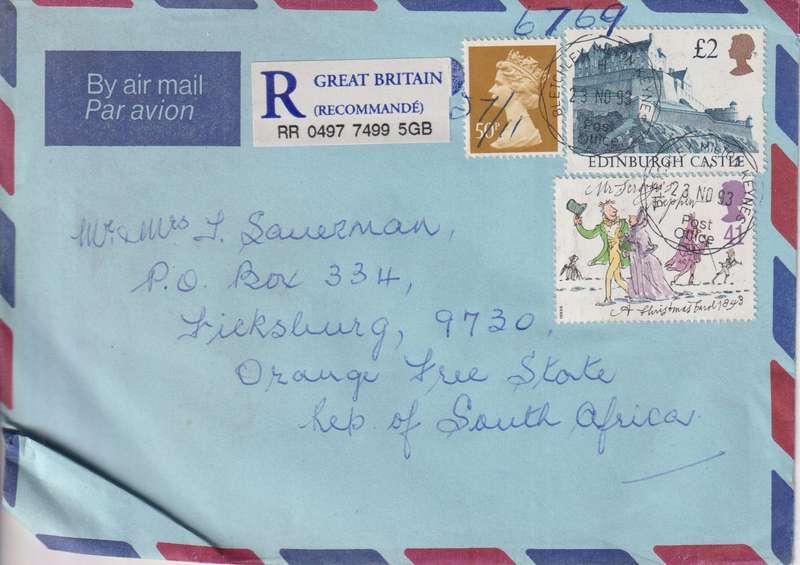 6769
By air mail
Par avion
R GREAT BRITAIN
(RECOMMANDÉ)
RR 0497 7499 5GB
7/11
50P
£2
EDINBURGH CASTLE
BLETCHLEY MILTON KEYNES
23 NO 93
Post
Office
Mr
41
A Christmas Carol 1843
MILTON KEYNES
23 NO 93
Post
Office
Mr & Mrs J. Sauerman,
P.O. Box 334,
Ficksburg, 9730,
Orange Free State
Rep. of South Africa.